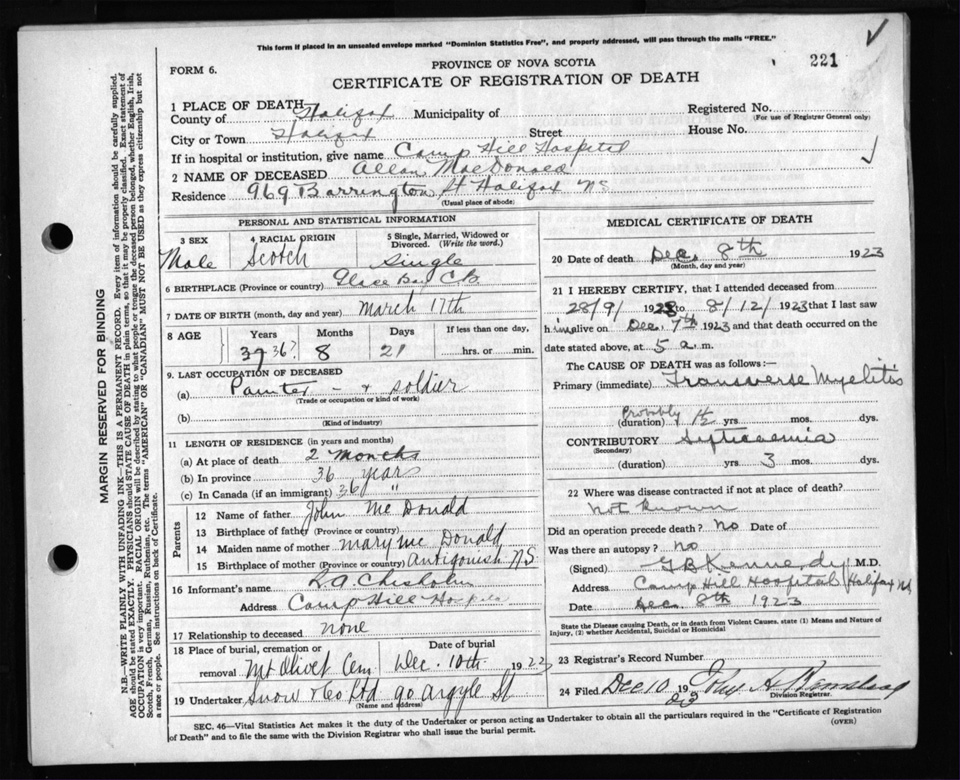 This form if placed in an unsealed envelope marked "Dominion Statistics Free", and properly addressed, will pass through the mails "FREE."
221
FORM 6.
PROVINCE OF NOVA SCOTIA
CERTIFICATE OF REGISTRATION OF DEATH
MARGIN RESERVED FOR BINDING
N.B.—WRITE PLAINLY WITH UNFADING INK—THIS IS A PERMANENT RECORD. Every item of information should be carefully supplied.
AGE should be stated EXACTLY. PHYSICIANS should STATE CAUSE OF DEATH in plain terms, so that it may be properly classified. Exact statement of
OCCUPATION is very important. RACIAL ORIGIN will be described by stating to what people or tongue the deceased person belonged, whether English, Irish,
Scotch, French, German, Russian, Ruthenian, etc. The terms "AMERICAN" or "CANADIAN" MUST NOT BE USED as they express citizenship but not
a race or people. See instructions on back of Certificate.
1 PLACE OF DEATH
County of Halifax Municipality of Registered No.
(For use of Registrar General only)
City or Town Halifax Street House No.
If in hospital or institution, give name Camp Hill Hospital
2 NAME OF DECEASED Allan MacDonald
Residence 969 Barrington St Halifax NS
(Usual place of abode)
PERSONAL AND STATISTICAL INFORMATION
3 SEX 4 RACIAL ORIGIN 5 Single, Married, Widowed or
Divorced. (Write the word.)
Male Scotch Single
6 BIRTHPLACE (Province or country) Glace Bay C.B.
7 DATE OF BIRTH (month, day and year) March 17th
8 AGE Years Months Days If less than one day,
36? 8 21 hrs. or min.
9. LAST OCCUPATION OF DECEASED
(a) Painter - + soldier
(Trade or occupation or kind of work)
(b)
(Kind of industry)
11 LENGTH OF RESIDENCE (in years and months)
(a) At place of death 2 months
(b) In province 36 years
(c) In Canada (if an immigrant) 36 "
Parents
12 Name of father John McDonald
13 Birthplace of father (Province or country)
14 Maiden name of mother Mary McDonald
15 Birthplace of mother (Province or country) Antigonish NS
16 Informant's name L.A. Chisholm
Address Camp Hill Hospital
17 Relationship to deceased none
18 Place of burial, cremation or Date of burial
removal Mt Olivet Cem Dec. 10th 1923
19 Undertaker Snow & Co Ltd 90 Argyle St
(Name and address)
MEDICAL CERTIFICATE OF DEATH
20 Date of death Dec. 8th 1923
(Month, day and year)
21 I HEREBY CERTIFY, that I attended deceased from
28/9/1923 to 8/12/1923 that I last saw
him alive on Dec. 7th 1923 and that death occurred on the
date stated above, at 5 a. m.
The CAUSE OF DEATH was as follows:—
Primary (immediate) Transverse Myelitis
Probably
(duration) 1½ yrs. mos. dys.
CONTRIBUTORY Septicaemia
(Secondary)
(duration) yrs 3 mos. dys.
22 Where was disease contracted if not at place of death?
Not known
Did an operation precede death? no Date of
Was there an autopsy? no
(Signed) G B Kennedy M.D.
Address Camp Hill Hospital Halifax NS
Date Dec. 8th 1923
State the Disease causing Death, or in death from Violent Causes, state (1) Means and Nature of
Injury, (2) whether Accidental, Suicidal or Homicidal
23 Registrar's Record Number
24 Filed Dec 10 1923 A
Division Registrar.
SEC. 46—Vital Statistics Act makes it the duty of the Undertaker or person acting as Undertaker to obtain all the particulars required in the "Certificate of Registration
of Death" and to file the same with the Division Registrar who shall issue the burial permit. (OVER)